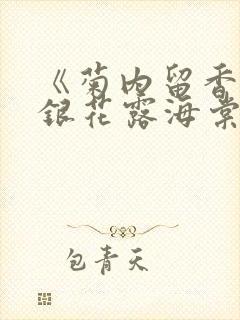 《菊内留香
银花露海棠
包青天